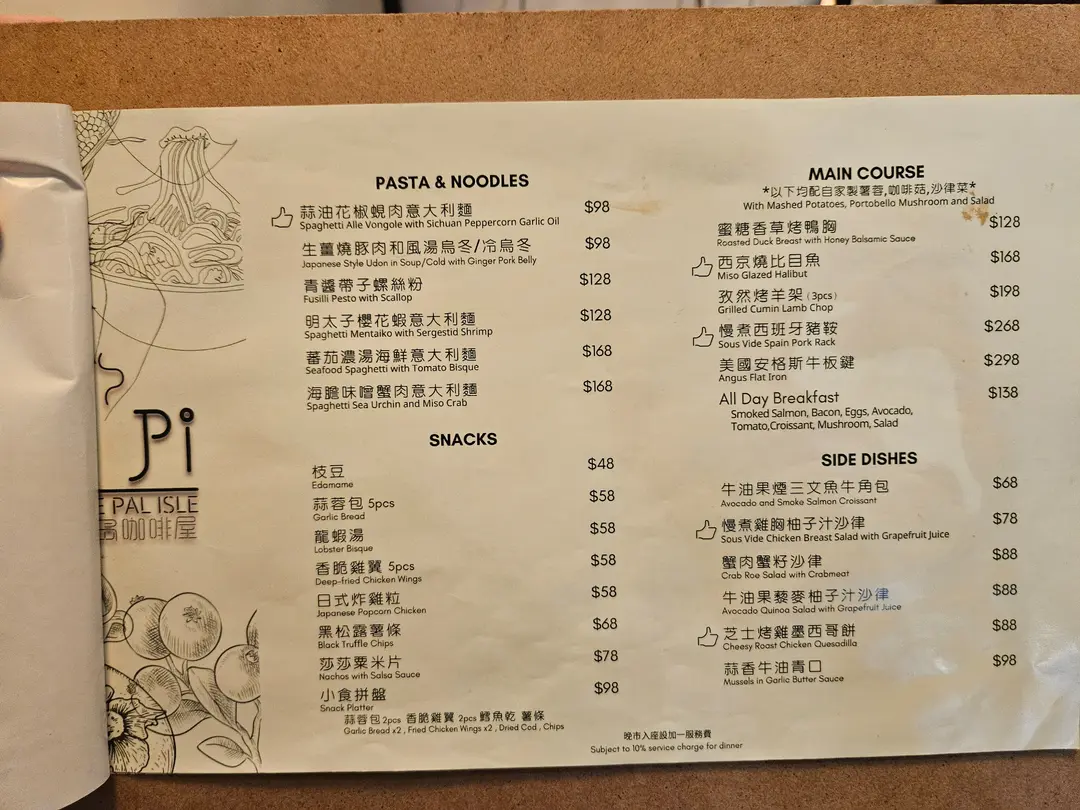 PASTA & NOODLES
蒜油花椒蜆肉意大利麵 $98
Spaghetti Alle Vongole with Sichuan Peppercorn Garlic Oil
生薑燒豚肉和風湯烏冬/冷烏冬 $98
Japanese Style Udon in Soup/Cold with Ginger Pork Belly
青醬帶子螺絲粉 $128
Fusilli Pesto with Scallop
明太子櫻花蝦意大利麵 $128
Spaghetti Mentaiko with Sergestid Shrimp
蕃茄濃湯海鮮意大利麵 $168
Seafood Spaghetti with Tomato Bisque
海膽味噌蟹肉意大利麵 $168
Spaghetti Sea Urchin and Miso Crab
SNACKS
枝豆 $48
Edamame
蒜蓉包 5pcs $58
Garlic Bread
龍蝦湯 $58
Lobster Bisque
香脆雞翼 5pcs $58
Deep-fried Chicken Wings
日式炸雞粒 $58
Japanese Popcorn Chicken
黑松露薯條 $68
Black Truffle Chips
莎莎粟米片 $78
Nachos with Salsa Sauce
小食拼盤 $98
Snack Platter
蒜蓉包 2pcs 香脆雞翼 2pcs 鱈魚乾 薯條
Garlic Bread x2 , Fried Chicken Wings x2 , Dried Cod , Chips
MAIN COURSE
*以下均配自家製薯蓉,咖啡菇,沙律菜*
With Mashed Potatoes, Portobello Mushroom and Salad
蜜糖香草烤鴨胸 $128
Roasted Duck Breast with Honey Balsamic Sauce
西京燒比目魚 $168
Miso Glazed Halibut
孜然烤羊架 (3pcs) $198
Grilled Cumin Lamb Chop
慢煮西班牙豬鞍 $268
Sous Vide Spain Pork Rack
美國安格斯牛板鍵 $298
Angus Flat Iron
All Day Breakfast $138
Smoked Salmon, Bacon, Eggs, Avocado,
Tomato,Croissant, Mushroom, Salad
SIDE DISHES
牛油果煙三文魚牛角包 $68
Avocado and Smoke Salmon Croissant
慢煮雞胸柚子汁沙律 $78
Sous Vide Chicken Breast Salad with Grapefruit Juice
蟹肉蟹籽沙律 $88
Crab Roe Salad with Crabmeat
牛油果藜麥柚子汁沙律 $88
Avocado Quinoa Salad with Grapefruit Juice
芝士烤雞墨西哥餅 $88
Cheesy Roast Chicken Quesadilla
蒜香牛油青口 $98
Mussels in Garlic Butter Sauce
晚市入座設加一服務費
Subject to 10% service charge for dinner
Pi
E PAL ISLE
咖啡屋